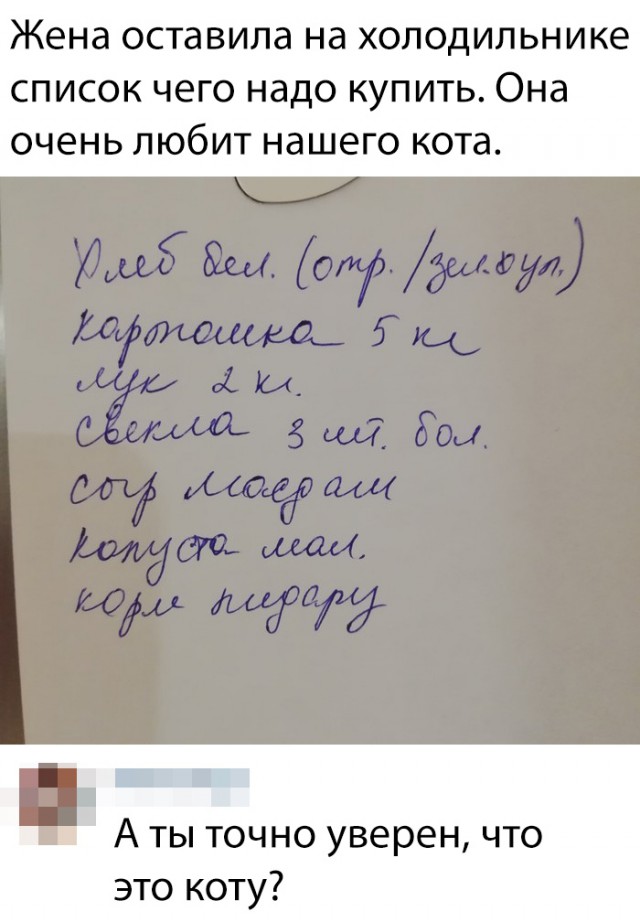 Жена оставила на холодильнике
список чего надо купить. Она
очень любит нашего кота.
Хлеб бел. (отр./зел.бул.)
картошка 5 кг
лук 2 кг.
свекла 3 шт. бол.
сыр маасдам
капуста мал.
корм пидару
А ты точно уверен, что
это коту?